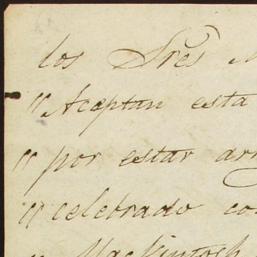 los Sres M
"Aceptan esta
"por estar arr
"celebrado co
"Mackintosh